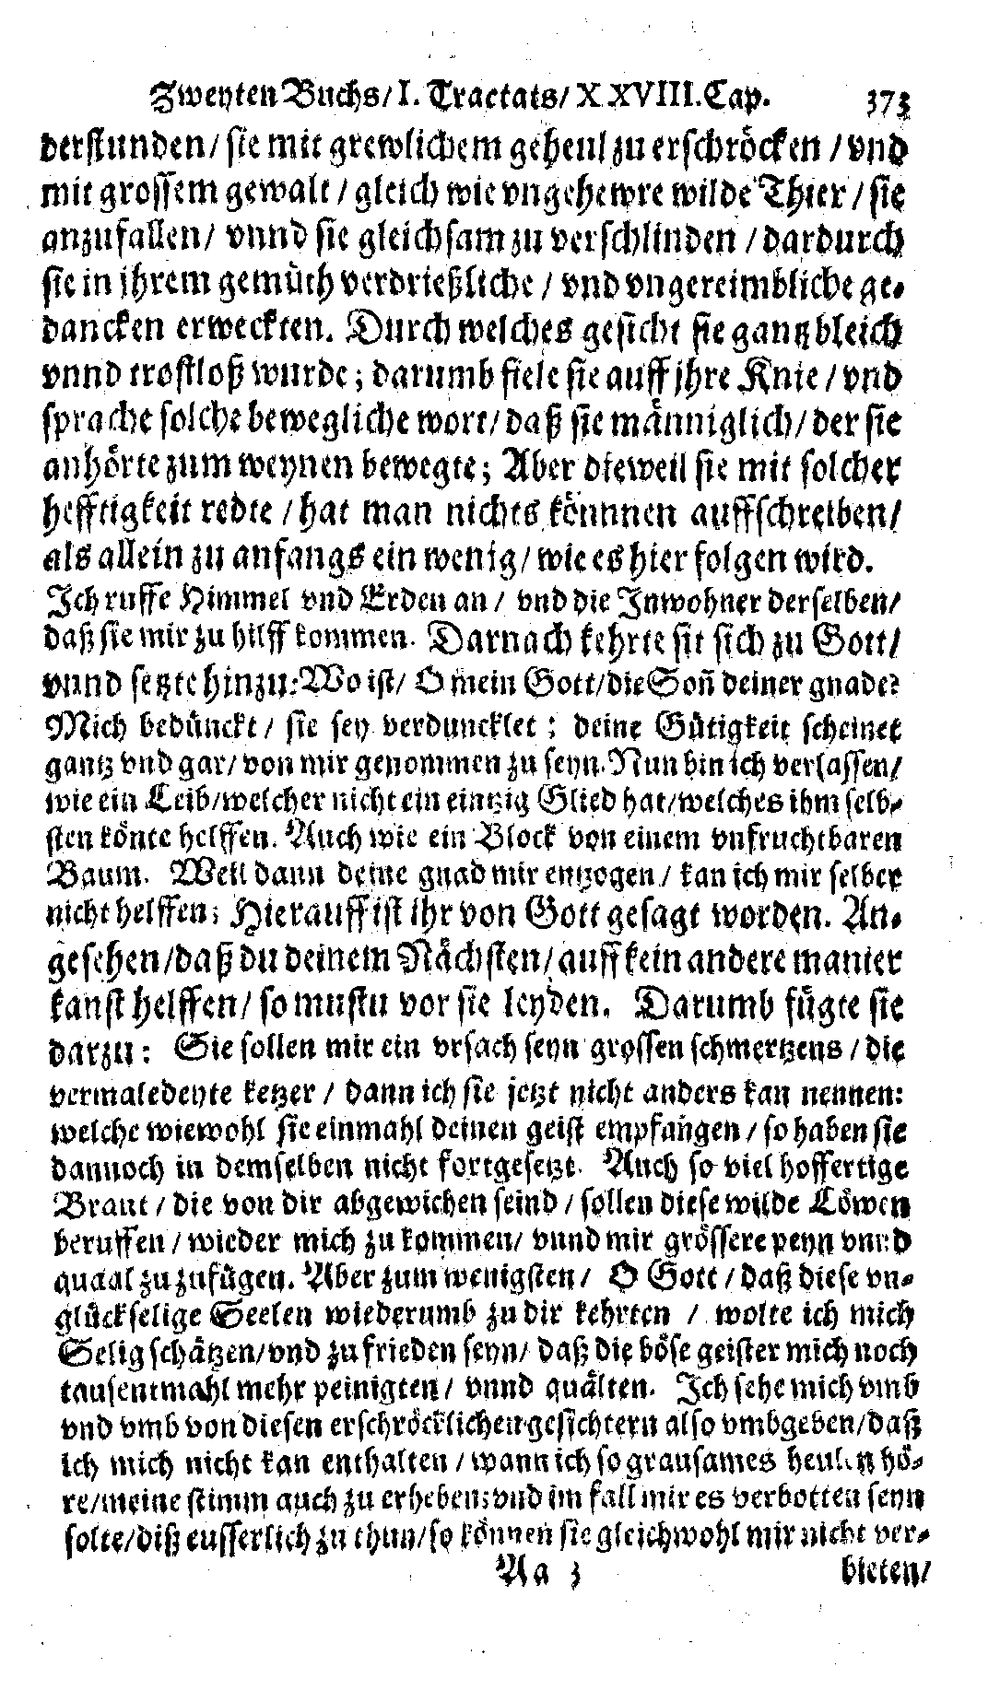 Zweyten Buchs/ I. Tractats/ XXVIII. Cap. 373
derstunden/ sie mit grewlichem geheul zu erschröcken / vnd
mit grossem gewalt / gleich wie vngehewre wilde Thier / sie
anzufallen/ vnnd sie gleichsam zu verschlinden / dardurch
sie in jhrem gemüth verdrießliche / vnd vngereimbliche ge-
dancken erweckten. Durch welches gesicht sie gantz bleich
vnnd trostloß wurde; darumb fiele sie auff jhre Knie / vnd
sprache solche bewegliche wort/ daß sie männiglich/ der sie
anhörte zum weynen bewegte; Aber dieweil sie mit solcher
hefftigkeit redte / hat man nichts können auffschreiben/
als allein zu anfangs ein wenig/ wie es hier folgen wird.
Ich ruffe Himmel vnd Erden an / vnd die Inwohner derselben/
daß sie mir zu hilff kommen. Darnach kehrte sie sich zu Gott/
vnnd setzte hinzu: Wo ist/ O mein Gott/ die Soñ deiner gnade?
Mich bedünckt / sie sey verduncklet ; deine Gütigkeit scheinet
gantz vnd gar/ von mir genommen zu seyn. Nun bin ich verlassen/
wie ein Leib/ welcher nicht ein eintzig Glied hat/ welches ihm selb-
sten könte helffen. Auch wie ein Block von einem vnfruchtbaren
Baum. Weil dann deine gnad mir entzogen / kan ich mir selber
nicht helffen; Hierauff ist ihr von Gott gesagt worden. An-
gesehen/ daß du deinem Nächsten/ auff kein andere manier
kanst helffen/ so mustu vor sie leyden. Darumb fügte sie
darzu: Sie sollen mir ein vrsach seyn grossen schmertzens / die
vermaledeyte ketzer / dann ich sie jetzt nicht anders kan nennen:
welche wiewohl sie einmahl deinen geist empfangen / so haben sie
dannoch in demselben nicht fortgesetzt. Auch so viel hoffertige
Braut / die von dir abgewichen seind / sollen diese wilde Löwen
beruffen / wieder mich zu kommen/ vnnd mir grössere peyn vnnd
quaal zu zufügen. Aber zum wenigsten / O Gott / daß diese vn-
glückselige Seelen wiederumb zu dir kehrten / wolte ich mich
Selig schätzen/ vnd zu frieden seyn/ daß die böse geister mich noch
tausentmahl mehr peinigten / vnnd quälten. Ich sehe mich vmb
vnd vmb von diesen erschröcklichen gesichtern also vmbgeben/ daß
ich mich nicht kan enthalten / wann ich so grausames heulen hö-
re/ meine stimm auch zu erheben; vnd im fall mir es verbotten seyn
solte/ diß eusserlich zu thun/ so können sie gleichwohl mir nicht ver-
Aa 3 bieten/